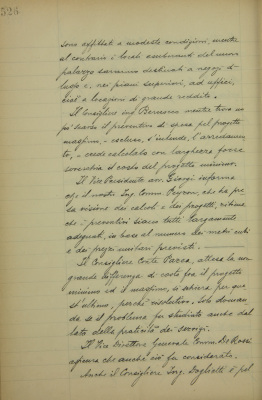 526
sono affittati a modeste condizioni, mentre
al contrario i locali assuntivi del nuovo
palazzo saranno destinati a negozi di
lusso e, nei piani superiori, ad uffici,
cioè a locazioni di grande reddito.
Il Consigliere ing. Bernocco mentre trova un
po' scarso il preventivo di spesa pel progetto
massimo, - escluso, s'intende, l'arredamen-
to, - crede calcolato con larghezza forse
soverchia il costo del progetto minimo.
Il Vice Presidente avv. Giorgi informa
che il nostro Ing. Comm. Peyron, che ha pre-
sa visione dei calcoli e dei progetti, ritiene
che i preventivi siano tutti largamente
adeguati, in base al numero dei metri cubi
e dei prezzi unitari previsti.
Il Consigliere Conte Parea, attesa la non
grande differenza di costo fra il progetto
minimo ed il massimo, si dichiara per que-
st'ultimo, perchè risolutivo. Solo doman-
da se il problema fu studiato anche dal
lato della praticità dei servizi.
Il Vice Direttore Generale Comm. De Rossi
afferma che anche ciò fu considerato.
Anche il Consigliere Ing. Baglietti è pel